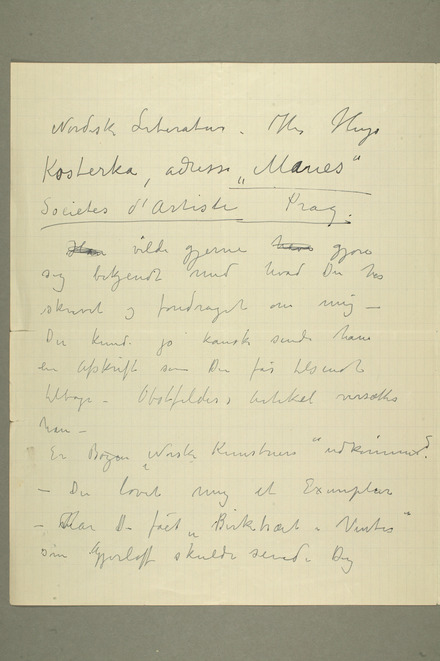 Nordisk Literatur. Hr Hugo
Kosterka, adresse „Manes"
Societes d'Artiste Prag.
Han vilde gjerne have gjøre
sig bekjendt med hvad Du har
skrevet og foredraget om mig –
Du kunde jo kanske sende ham
en Afskrift som Du får tilsendt
tilbage – Obstfelders Artikel oversætter
han –
Er Bogen „Norske Kunstnere" udkommet?
– Du lovet mig et Exemplar
– Har Du fået „Birketræet i Vinter"
som Gjerløff skulde sende Dig